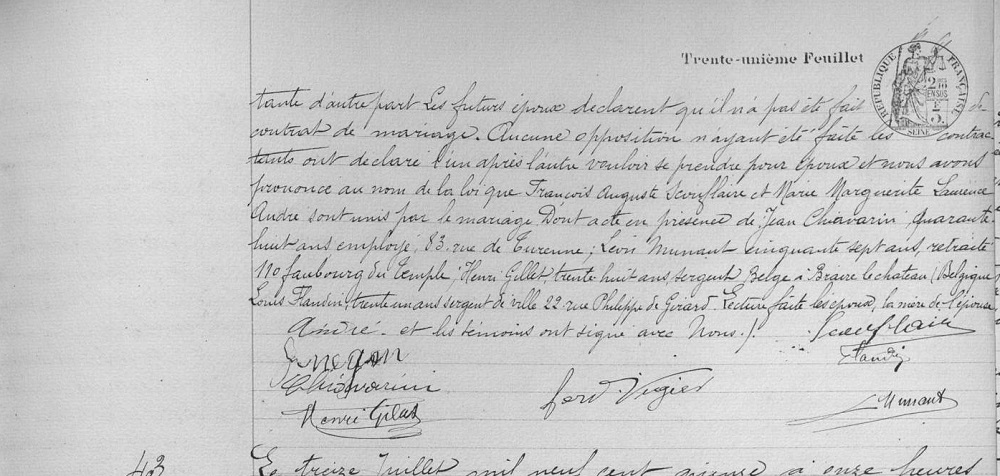 Trente-unième Feuillet
RÉPUBLIQUE FRANÇAISE
SEINE
tante d'autre part Les futurs époux déclarent qu'il n'a pas été fait de
contrat de mariage. Aucune opposition n'ayant été faite les contrac
tants ont déclaré l'un après l'autre vouloir se prendre pour époux et nous avons
prononcé au nom de la loi que François Auguste et Marie Marguerite Laurence
André sont unis par le mariage Dont acte en présence de, Jean Chiavarin quarante
huit ans employé, 83 rue de Turenne; Léon Munant cinquante sept ans, retraité
110 faubourg du Temple; Henri Gillet trente huit ans, sergent Belge à Braine le chateau (Belgique)
Louis Flandin, trente un ans sergent de ville 22 rue Philippe de Girard. Lecture faite les époux, la mère de l'épouse
André et les témoins ont signé avec Nous./.
Flandin
Chiavarini
Henri Gillet
Vigier
Munant
43
Le treize Juillet mil neuf cent à onze heures